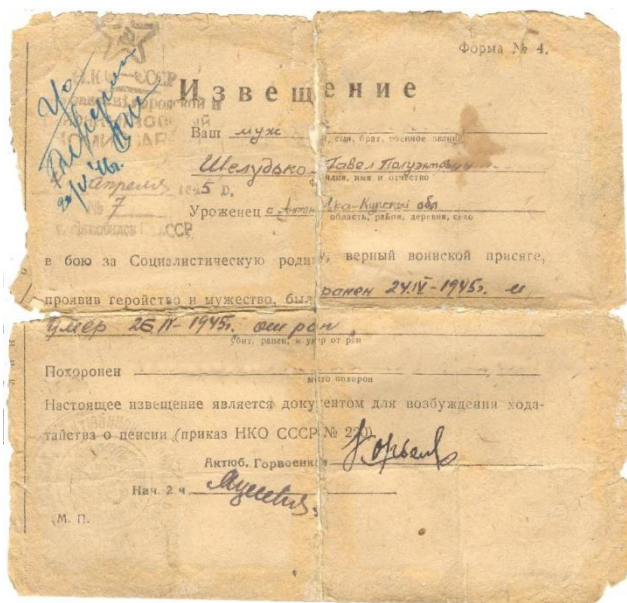 Форма № 4.
СССР
Извещение
Ваш муж
сын, брат, военное звание
Шелудько Павел Полуэктович
имя и отчество
Апреля 5
№ 7
Уроженец с. Курской обл
область, район, деревня, село
СССР
в бою за Социалистическую родину, верный воинской присяге,
проявив геройство и мужество, был ранен 24.IV-1945г. и
умер 26 IV-1945г. от ран
убит, ранен, и умер от ран
Похоронен
место похорон
Настоящее извещение является документом для возбуждения хода-
тайства о пенсии (приказ НКО СССР № 220)
Актюб. Горвоенком
Нач. 2 ч
(М. П.